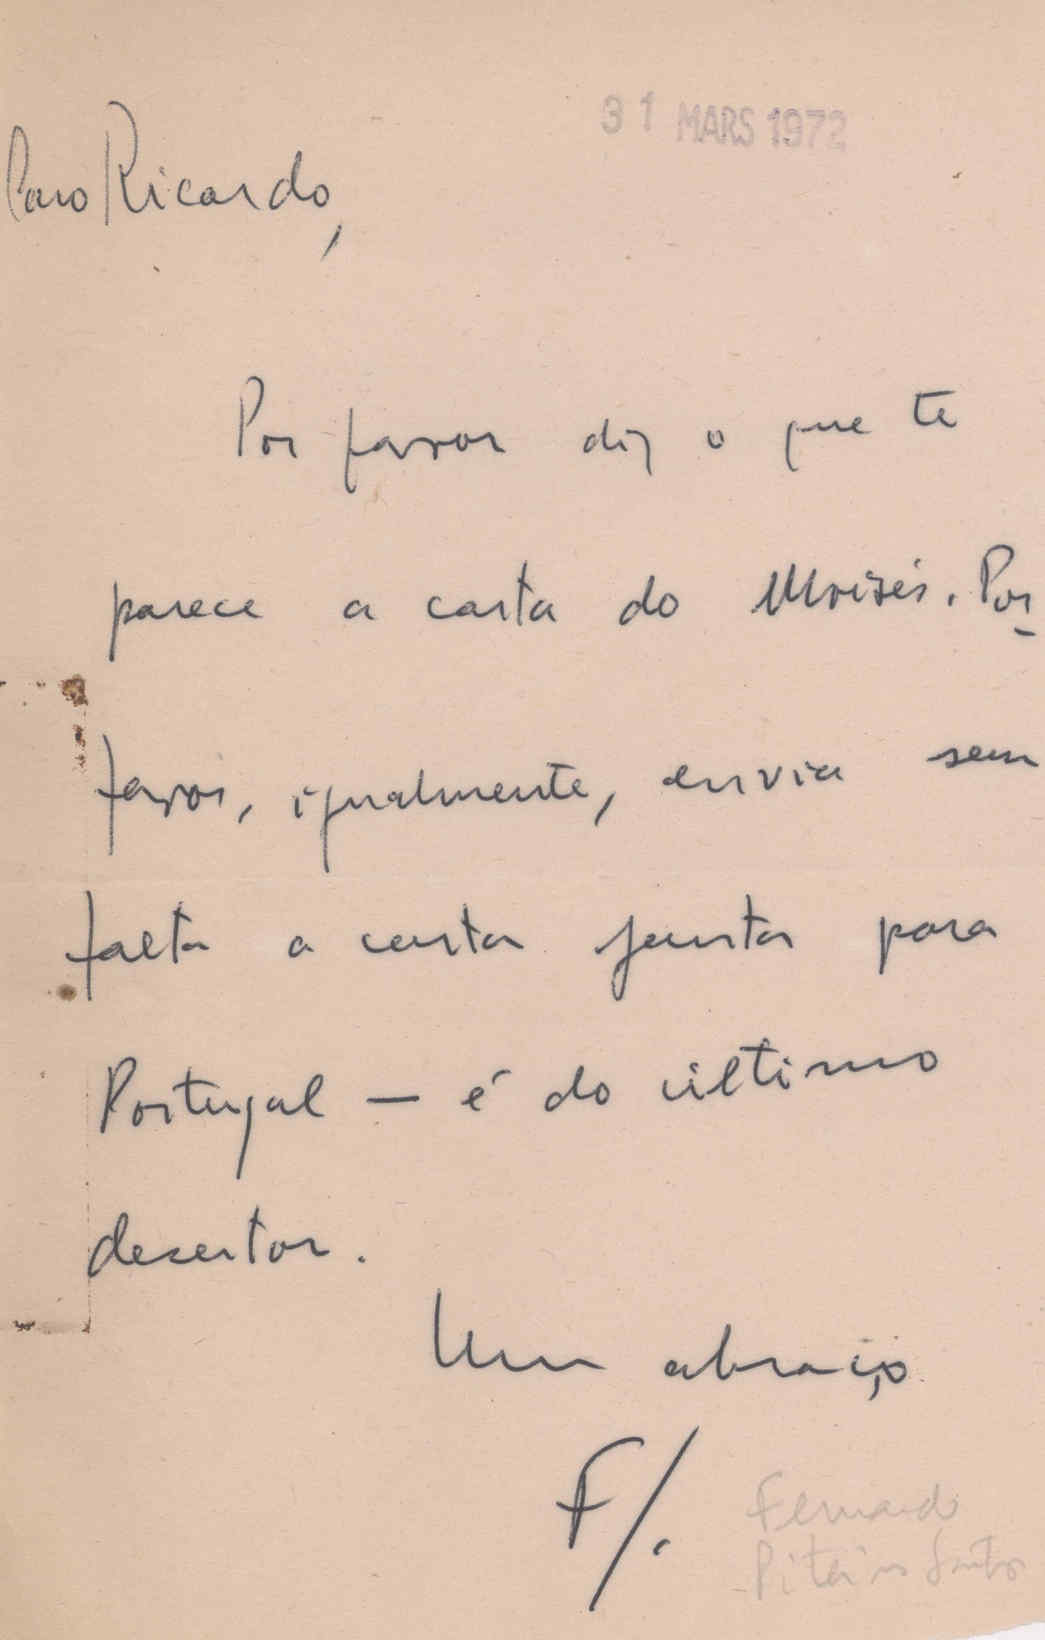 31 MARS 1972
Caro Ricardo,
Por favor diz o que te
parece a carta do Moisés. Por
favor, igualmente, envia sem
falta a carta junta para
Portugal — é do último
desertor.
Um abraço
F/.
Fernando
Piteira Santos